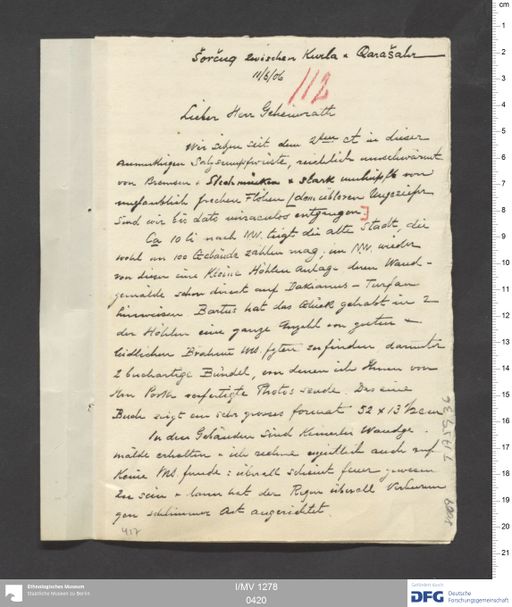 Šorčuq zwischen Kurla & Qarašahr
11/6/06
112
Lieber Herr Geheimrath
Wir sitzen seit dem 2ten ct in dieser
anmuthigen Salzsumpfwüste, reichlich umschwärmt
von Bremsen & Stechmücken & stark umhüpft von
unglaublich frechen Flöhen [dem übleren Ungeziefer
sind wir bis dato miraculos entgangen.]
Ca 10 li nach NW. liegt die alte Stadt, die
wohl an 100 Gebäude zählen mag, im NW. wieder
von dieser eine kleine Höhlen Anlage deren Wand-
gemälde schon direct auf Dakianus - Turfan
hinweisen. Bartus hat das Glück gehabt in 2
der Höhlen eine ganze Anzahl von guten &
leidlichen Brahmi MS. fgten zu finden darunter
2 buchartige Bündel, von denen ich Ihnen von
Herrn Porth verfertigte Photos sende. Das eine
Buch zeigt ein sehr grosses format. 52 x 13 1/2 cm
In den Gebäuden sind keinerlei Wandge-
mälde erhalten & ich rechne eigentlich auch auf
keine MS. funde: überall scheint feuer gewesen
zu sein & dann hat der Regen überall Verheerun
gen schlimmer Art angerichtet.
417
TA 6539
Ethnologisches Museum
Staatliche Museen zu Berlin
I/MV 1278
0420
Gefördert durch
DFG Deutsche
Forschungsgemeinschaft
cm
1
2
3
4
5
6
7
8
9
10
11
12
13
14
15
16
17
18
19
20
21